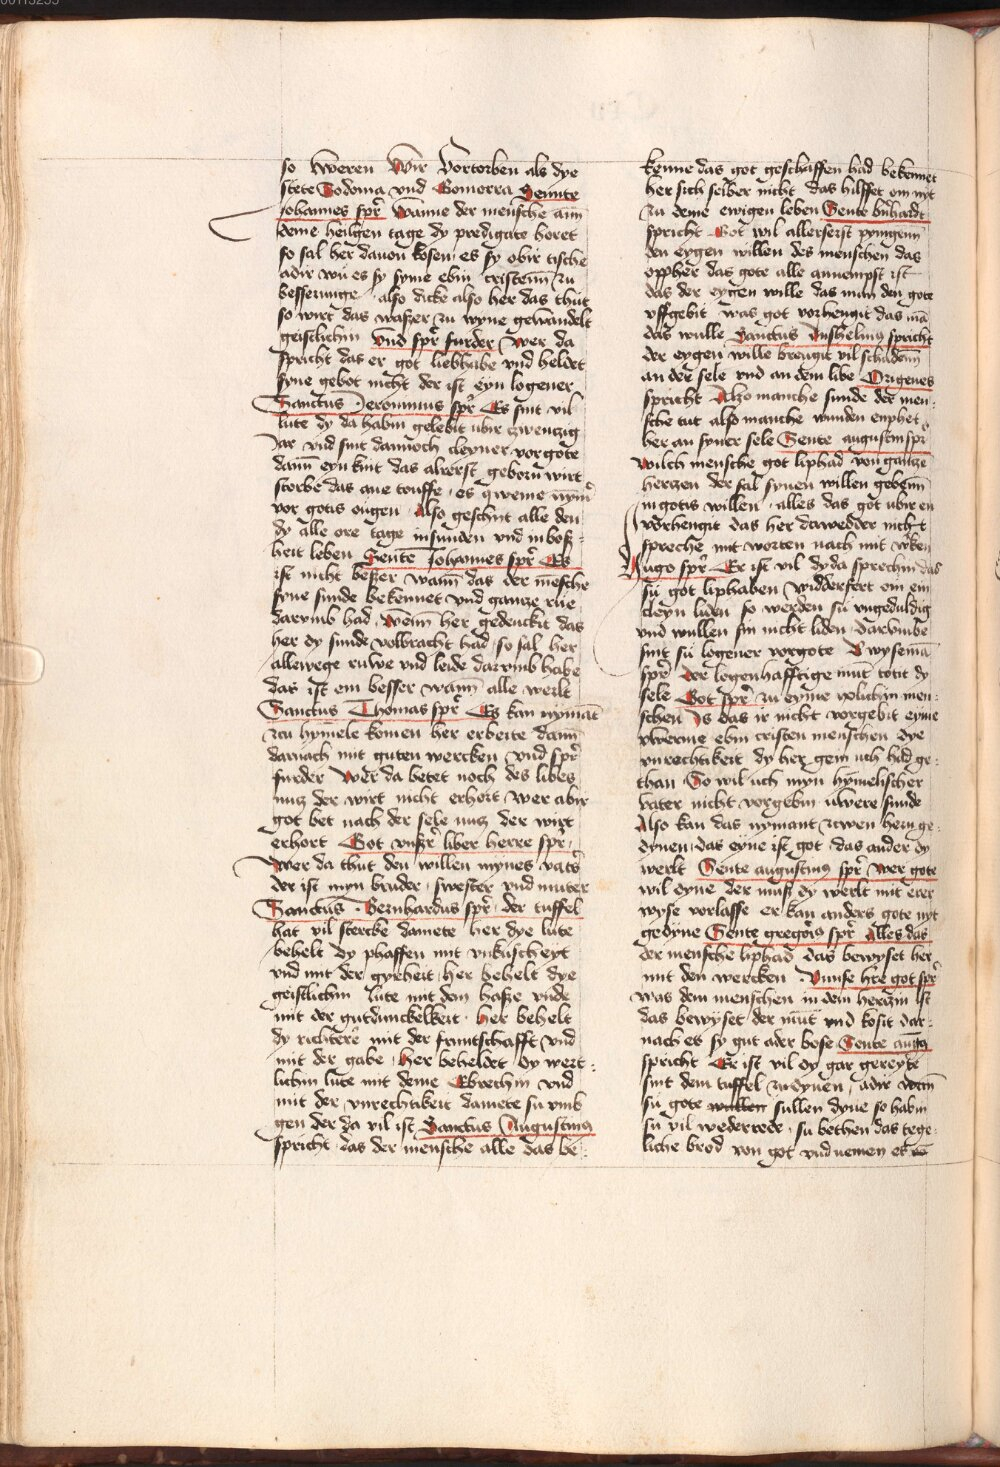 so weren wir vortorben als dye
stete Sodoma vnd Gomorra Sennte
Johannes spr̄ Wanne der mensche ann
deme heilgen tage dy predigate horet
so sal her dauon kosen es sy obir tische
adir wu es sy syme ebin cristenn̄ zu
besserunge also dicke also her das thut
so wirt das waszer zu wyne gewandelt
geistlichin vnd spr̄ furder Wer da
spricht das er got liebhabe vnd heldet
syne gebot nicht der ist eyn logener
Sanctus Jeronimus spr̄ Es sint vil
lute dy da habin gelebit ubir czwenczig
Jar vnd sint dannoch cleyner vor gote
dann eyn kint das alrerst geborn̄ wirt
storbe das ane touffe es qweme nym̄
vor gotis ougen Also geschit alle den
dy alle ore tage in sunden vnd in bosz=
heit leben Sente Johannes spr̄ Es
ist nicht beszer wann̄ das der mēsche
syne sunde bekennet vnd gancze rue
darvmb had Wenn̄ her gedenckit das
her dy sunde volbracht had so sal her
allewege ruwe vnd leide darvmb habe
das ist em besser wann̄ alle werlt
Sanctus Thomas spr̄ Es kan nymāt
zcu hymele komen her erbeite dann̄
darnach mit guten wercken vnd spr̄
furder Wer da betet noch des libes
nucz der wirt nicht erhort wer abir
got bet nach der sele nucz der wirt
erhort Got vnszr̄ liber herre spr̄
Wer da thut den willen mynes vatr̄s
der ist myn bruder swester vnd muter
Sanctus Bernhardus spr̄ der tuffel
hat vil stercke damete her dye lute
behelt dy phaffen mit vnkuscheyt
vnd mit der gyrheit her behelt dye
geistlichin lute mit dem hasze vnde
mit der gutdunckelkeit her behelt
dy richtere mit der fruntschafft vnd
mit der gabe her beheldet dy wert=
lichin lute mit deme Ebrechin vnd
mit der vnrechtikeit damete su vmb
gen der da vil ist Sanctus Augustin9
spricht das der mensche alle das be=
kenne das got geschaffen had bekennet
her sich selber nicht das hilffet om nyt
zu deme ewigen leben Sente bn̄hardt
spricht Got wil allererst pynigenn̄
den eygen willen des menschen das
oppher das gote alle annempst ist
das der eygen wille das man den gote
vffgebit was got vorhengit das mā
das wulle Sanctus Anshelm9 spricht
der eygen wille brengit vil schadenn̄
an der sele vnd an dem libe Origenes
spricht Also manche sunde der men=
sche tut also manche wunden enphet
her an syner sele Sente augustin spr̄
Wilch mensche got liphad von gantze
hertzen der sal synen willen gebenn̄
in gotis willen alles das got ubir en
vorhengit das her dawedder nicht
spreche mit worten nach mit w̄ken
Hugo spr̄ Er ist vil dy da sprechin das
su got liphaben widderfert em ein
cleyn liden so werden su vngeduldig
vnd wullen sin nicht liden darvmbe
sint su logener vor gote Eyn wysemā
spr̄ Der logenhafftige mut totit dy
sele Got spr̄ zu eyme yolichin men=
schen Is das ir nicht vorgebit eyme
uwerme ebin cristen menschen dye
vnrechtikeit dy her gein uch hid ge=
than So wil uch myn hymelischer
vater nicht vorgebin uwere sunde
Also kan das nymant zcwen hern ge=
dynen das eyne ist got das ander dy
werlt Sente augustin9 spr̄ wer gote
wil dyne der musz dy werlt mit erer
wyse vorlasse er kan anders gote nyt
gedyne Sente gregori9 spr̄ Alles das
der mensche liphad das bewyset her
mit den wercken Vnnse hr̄e got spr̄
was dem menschen in dem hertzin ist
das bewyset der mūt vnd kosit dar=
nach es sy gut ader bose Sente aug9
spricht Er ist vil dy gar gereyte
sint dem tuffel zu dynen adir wann̄
su gote wullen sullen dyne so habin
su vil wederrede su bethen das tege=
liche brod von got vnd nemen es